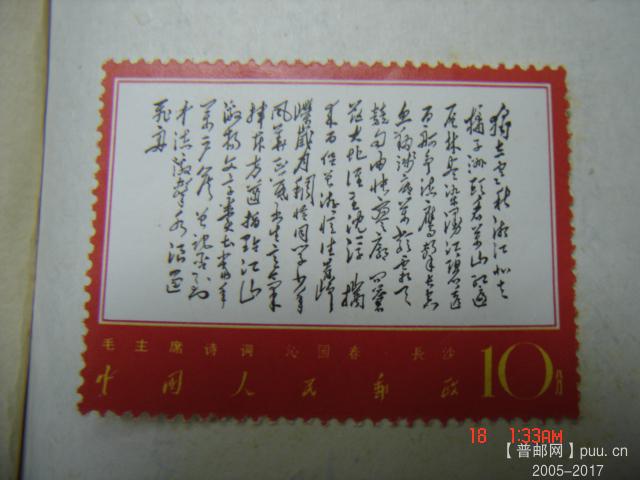 独立寒秋湘江北去
橘子洲头看万山红遍
层林尽染漫江碧透
百舸争流鹰击长空
鱼翔浅底万类霜天
竞自由怅寥廓问苍
茫大地谁主沉浮携
来百侣曾游忆往昔峥
嵘岁月稠恰同学少年
风华正茂书生意气
挥斥方遒指点江山
激扬文字粪土当年
万户侯曾记否到
中流击水浪遏
飞舟
毛主席诗词 沁园春·长沙
中国人民邮政 10分
18 1:33AM
【普邮网】puu.cn
2005-2017